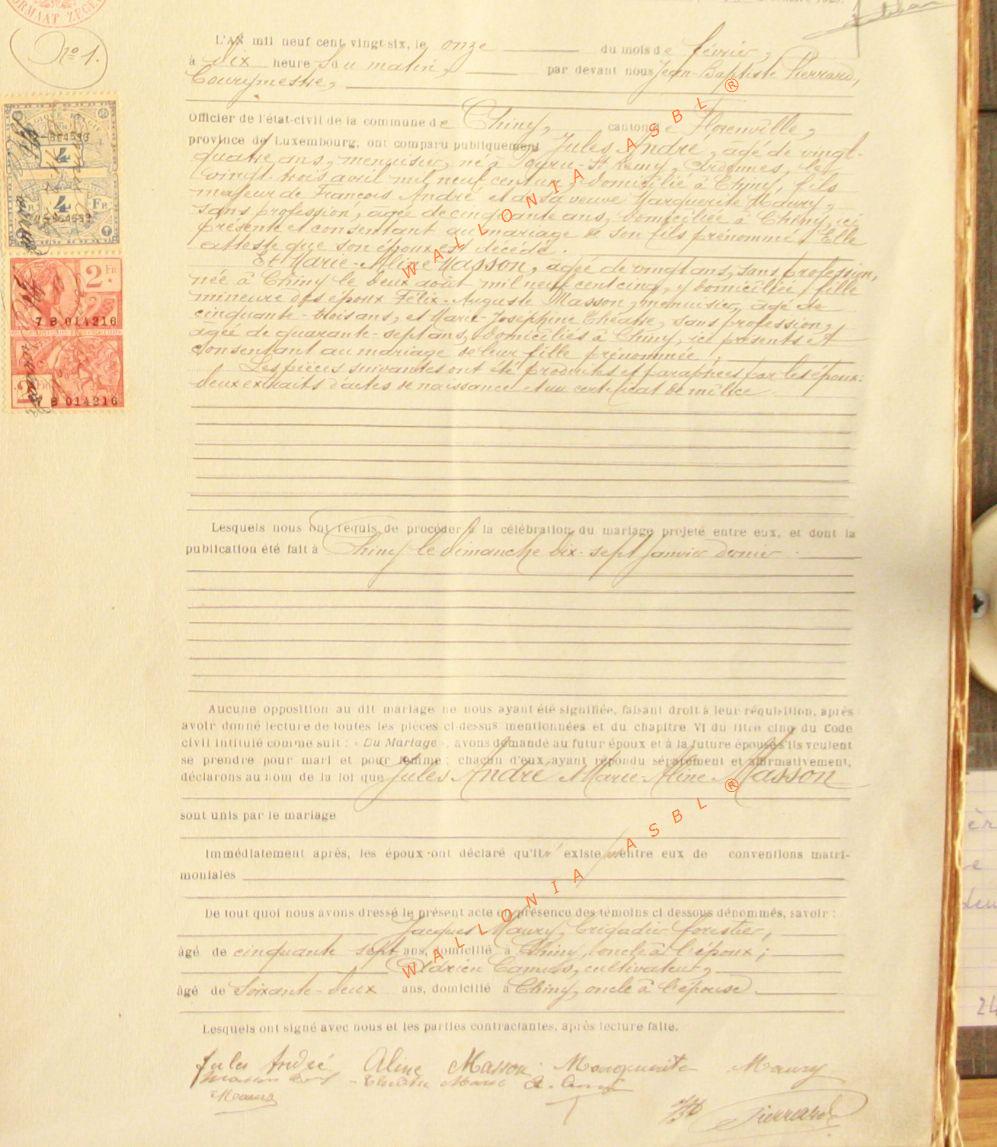 FORMAAT ZEGEL
N° 1.
L'AN mil neuf cent vingt-six, le onze du mois de février,
à dix heures du matin, par devant nous Jean-Baptiste Pierrard,
Bourgmestre,
Officier de l'état-civil de la commune de Chiny, canton de Florenville,
province de Luxembourg, ont comparu publiquement Jules André, agé de vingt-
quatre ans, menuisier, né à St Remy, Ardennes, le
vingt-trois avril mil neuf cent un, domicilié à Chiny, fils
majeur de François André et de sa veuve Marguerite Maury,
sans profession, agée de cinquante ans, domiciliée à Chiny, ici
présente et consentant au mariage de son fils prénommé. Elle
atteste que son époux est décédé.
Et Marie-Aline Masson, agée de vingt ans, sans profession,
née à Chiny le deux août mil neuf cent cinq, y domiciliée, fille
mineure des époux Félix-Auguste Masson, menuisier, agé de
cinquante-trois ans, et Marie-Joséphine Théatre, sans profession,
agée de quarante-sept ans, domiciliés à Chiny, ici présents et
consentant au mariage de leur fille prénommée.
Les pièces suivantes ont été produites et paraphées par les époux:
deux extraits d'actes de naissance et un certificat de milice.
4 FR
4 FR
2 FR
7 B 014216
7 B 014216
Lesquels nous ont requis de procéder à la célébration du mariage projeté entre eux, et dont la
publication été fait à Chiny le dimanche dix-sept janvier dernier.
Aucune opposition au dit mariage ne nous ayant été signifiée, faisant droit à leur réquisition, après
avoir donné lecture de toutes les pièces ci-dessus mentionnées et du chapitre VI du titre cinq du Code
civil intitulé comme suit : « Du Mariage », avons demandé au futur époux et à la future épouse s'ils veulent
se prendre pour mari et pour femme; chacun d'eux ayant répondu séparément et affirmativement,
déclarons au nom de la loi que Jules André Marie-Aline Masson
sont unis par le mariage
Immédiatement après, les époux ont déclaré qu'il existe entre eux de conventions matri-
moniales
De tout quoi nous avons dressé le présent acte en présence des témoins ci dessous dénommés, savoir :
Jacques Maury, brigadier forestier,
âgé de cinquante sept ans, domicilié à Chiny, oncle à l'époux;
Adrien Camus, cultivateur,
âgé de soixante-deux ans, domicilié à Chiny, oncle à l'épouse.
Lesquels ont signé avec nous et les parties contractantes, après lecture faite.
Jules André Aline Masson Marguerite Maury
Masson Théatre Marie
Maury
Pierrard
WALLONIA ASBL ®
WALLONIA ASBL ®
24